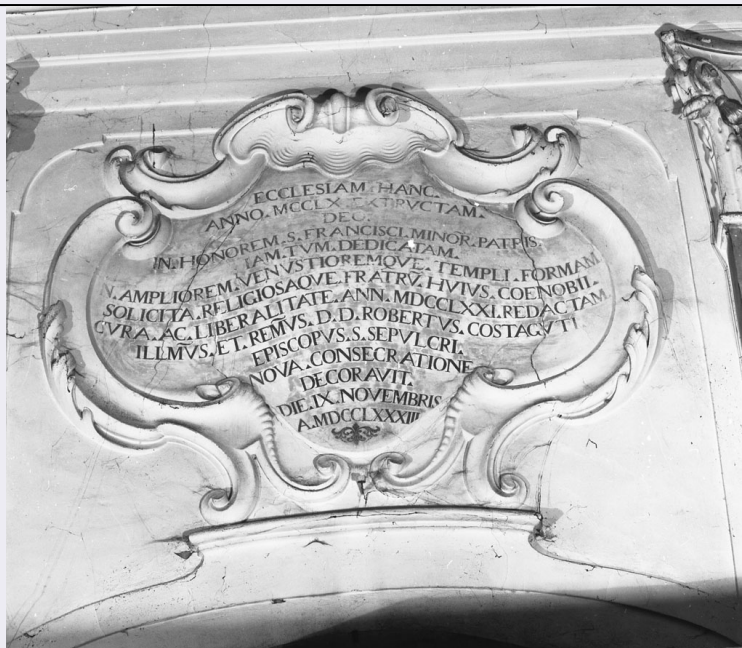 ECCLESIAM HANC.
ANNO. MCCLX. EXTRVCTAM.
DEO.
IN. HONOREM. S. FRANCISCI. MINOR. PATRIS.
IAM. TVM. DEDICATAM.
N. AMPLIOREM. VENVSTIOREMQVE. TEMPLI. FORMAM
SOLICITA. RELIGIOSAQVE. FRATRV̄. HVIVS. COENOBII.
CVRA. AC. LIBERALITATE. ANN. MDCCLXXI. REDACTAM
ILLMVS. ET. REMVS. D. D. ROBERTVS. COSTAGVTI
EPISCOPVS. S. SEPVLCRI.
NOVA. CONSECRATIONE
DECORAVIT.
DIE. IX. NOVEMBRIS
A. MDCCLXXXIII